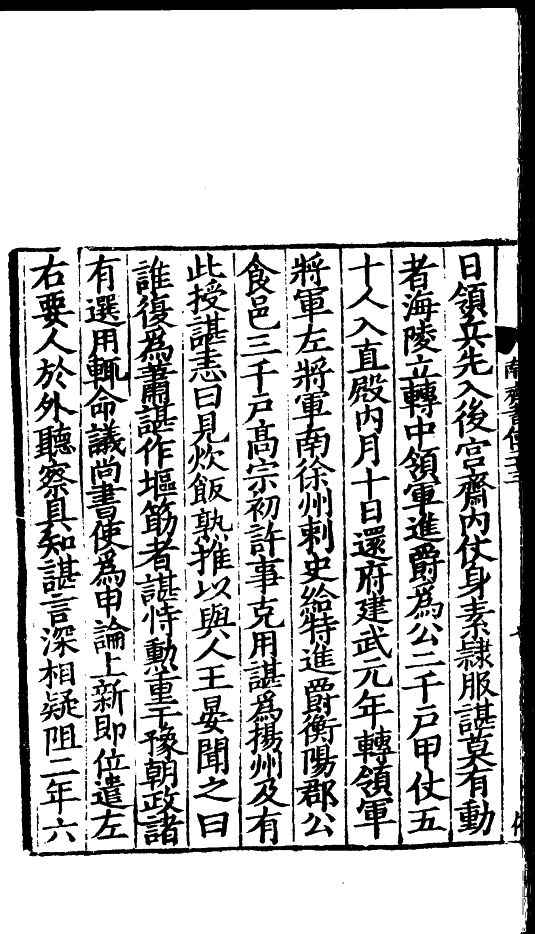 日領兵先入後宮齋内仗身素隸服諶莫有動
者海陵立轉中領軍進爵爲公二千戸甲仗五
十人入直殿内月十日還府建武元年轉領軍
將軍左將軍南徐州刺史給特進爵衡陽郡公
食邑三千戸髙宗初許事克用諶爲揚州及有
此授諶恚曰見炊飯熟推以與人王晏聞之曰
誰復爲蕭諶作堰筯者諶恃勳重干豫朝政諸
有選用輒命議尚書使爲申論上新即位遣左
右要人於外聽察具知諶言深相疑阻二年六